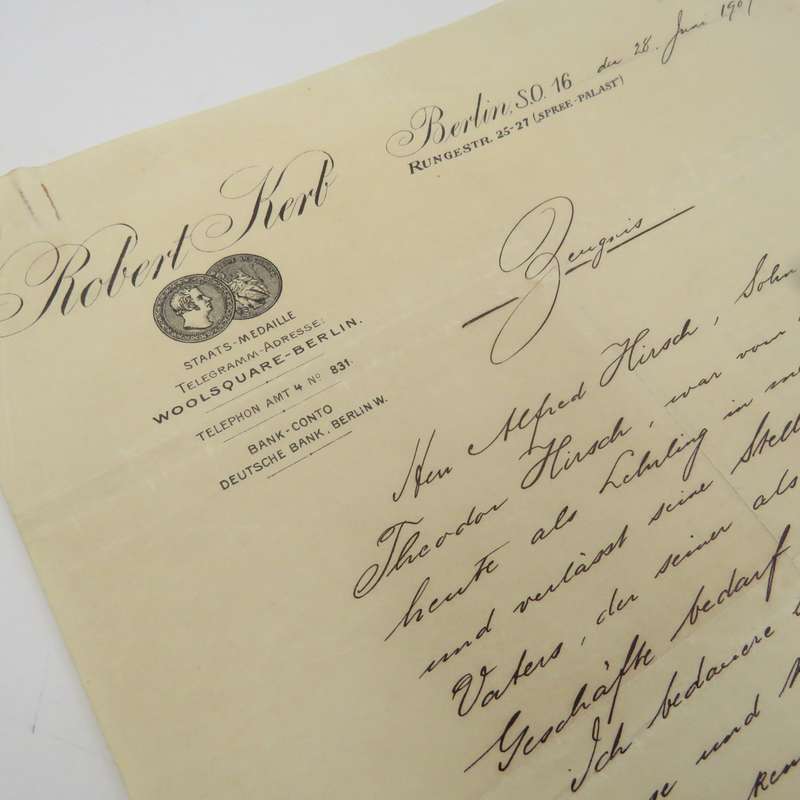 Berlin, S.O. 16 den 28. Juni 190
RUNGESTR. 25-27 (SPREE-PALAST)
Robert Kerb
STAATS-MEDAILLE
TELEGRAMM-ADRESSE:
WOOLSQUARE-BERLIN.
TELEPHON AMT 4 No 831.
BANK-CONTO
DEUTSCHE BANK, BERLIN W.
Zeugnis
Herr Alfred Hirsch, Sohn
Theodor Hirsch, war vom
heute als Lehrling in
und verlässt seine
Vaters, der seiner als
Geschäfte bedarf
Ich bedauere
und